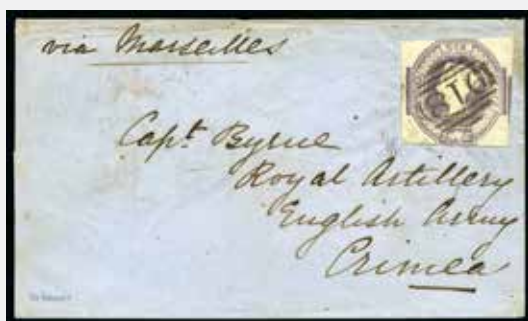 via Marseilles
Capt. Byrne
Royal Artillery
English Army
Crimea